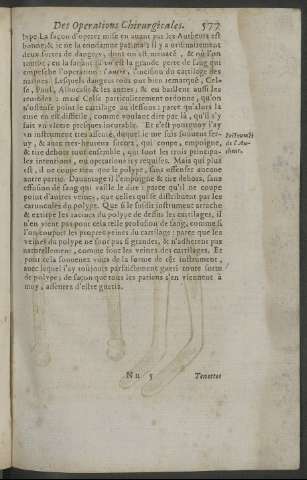 Des Operations Chirurgicales. 577
type. La façon d'operer mise en auant par les Autheurs est
bonne, & ie ne la condamne pas: mais il y a ordinairement
deux sortes de dangers, dont on est menacé, & où l'on
tombe, en la faisant: l'vn est la grande perte de sang qui
empesche l'operation: l'autre, l'incision du cartilage des
narines. Lesquels dangers tous ont bien remarqué, Cel-
se, Paul, Albucasis & les autres; & en baillent aussi les
remedes: mais Celse particulierement ordonne, qu'on
n'offense point le cartilage au dessous: parce qu'alors la
cure en est difficile, comme voulant dire par là, qu'il s'y
fait vn vlcere presques incurable. Et c'est pourquoy i'ay
vn instrument tres asseuré, duquel ie me suis souuent ser-
uy, & auec tres-heureux succez, qui coupe, empoigne,
& tire dehors tout ensemble, qui sont les trois principa-
les intentions, ou operations icy requises. Mais qui plus
est, il ne coupe rien que le polype, sans offenser aucune
autre partie. Dauantage il l'empoigne & tire dehors, sans
effusion de sang qui vaille le dire: parce qu'il ne coupe
point d'autres veines, que celles qui se distribuent par les
caruncules du polype. Que si le susdit instrument arrache
& extirpe les racines du polype de dessus les cartilages, il
n'en vient pas pour cela telle profusion de sang, comme si
l'on coupoit les propres veines du cartilage: parce que les
veines du polype ne sont pas si grandes, & n'adherent pas
naturellement, comme font les veines des cartilages. Et
pour cela souuenez vous de la forme de cét instrument,
auec lequel i'ay tousiours parfaictement guery toute sorte
de polype; de façon que tous les patiens s'en viennent à
moy, asseurez d'estre gueris.
Instrument
de l'Au-
theur.
Nn 5 Tenettes